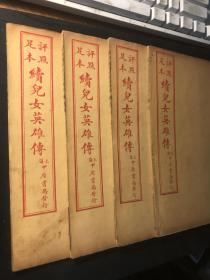 評點
足本
續兒女英雄傳
上海中原書局發行
評點
足本
續兒女英雄傳
上海中原書局發行
評點
足本
續兒女英雄傳
上海中原書局發行
評點
足本
續兒女英雄傳
上海中原書局發行